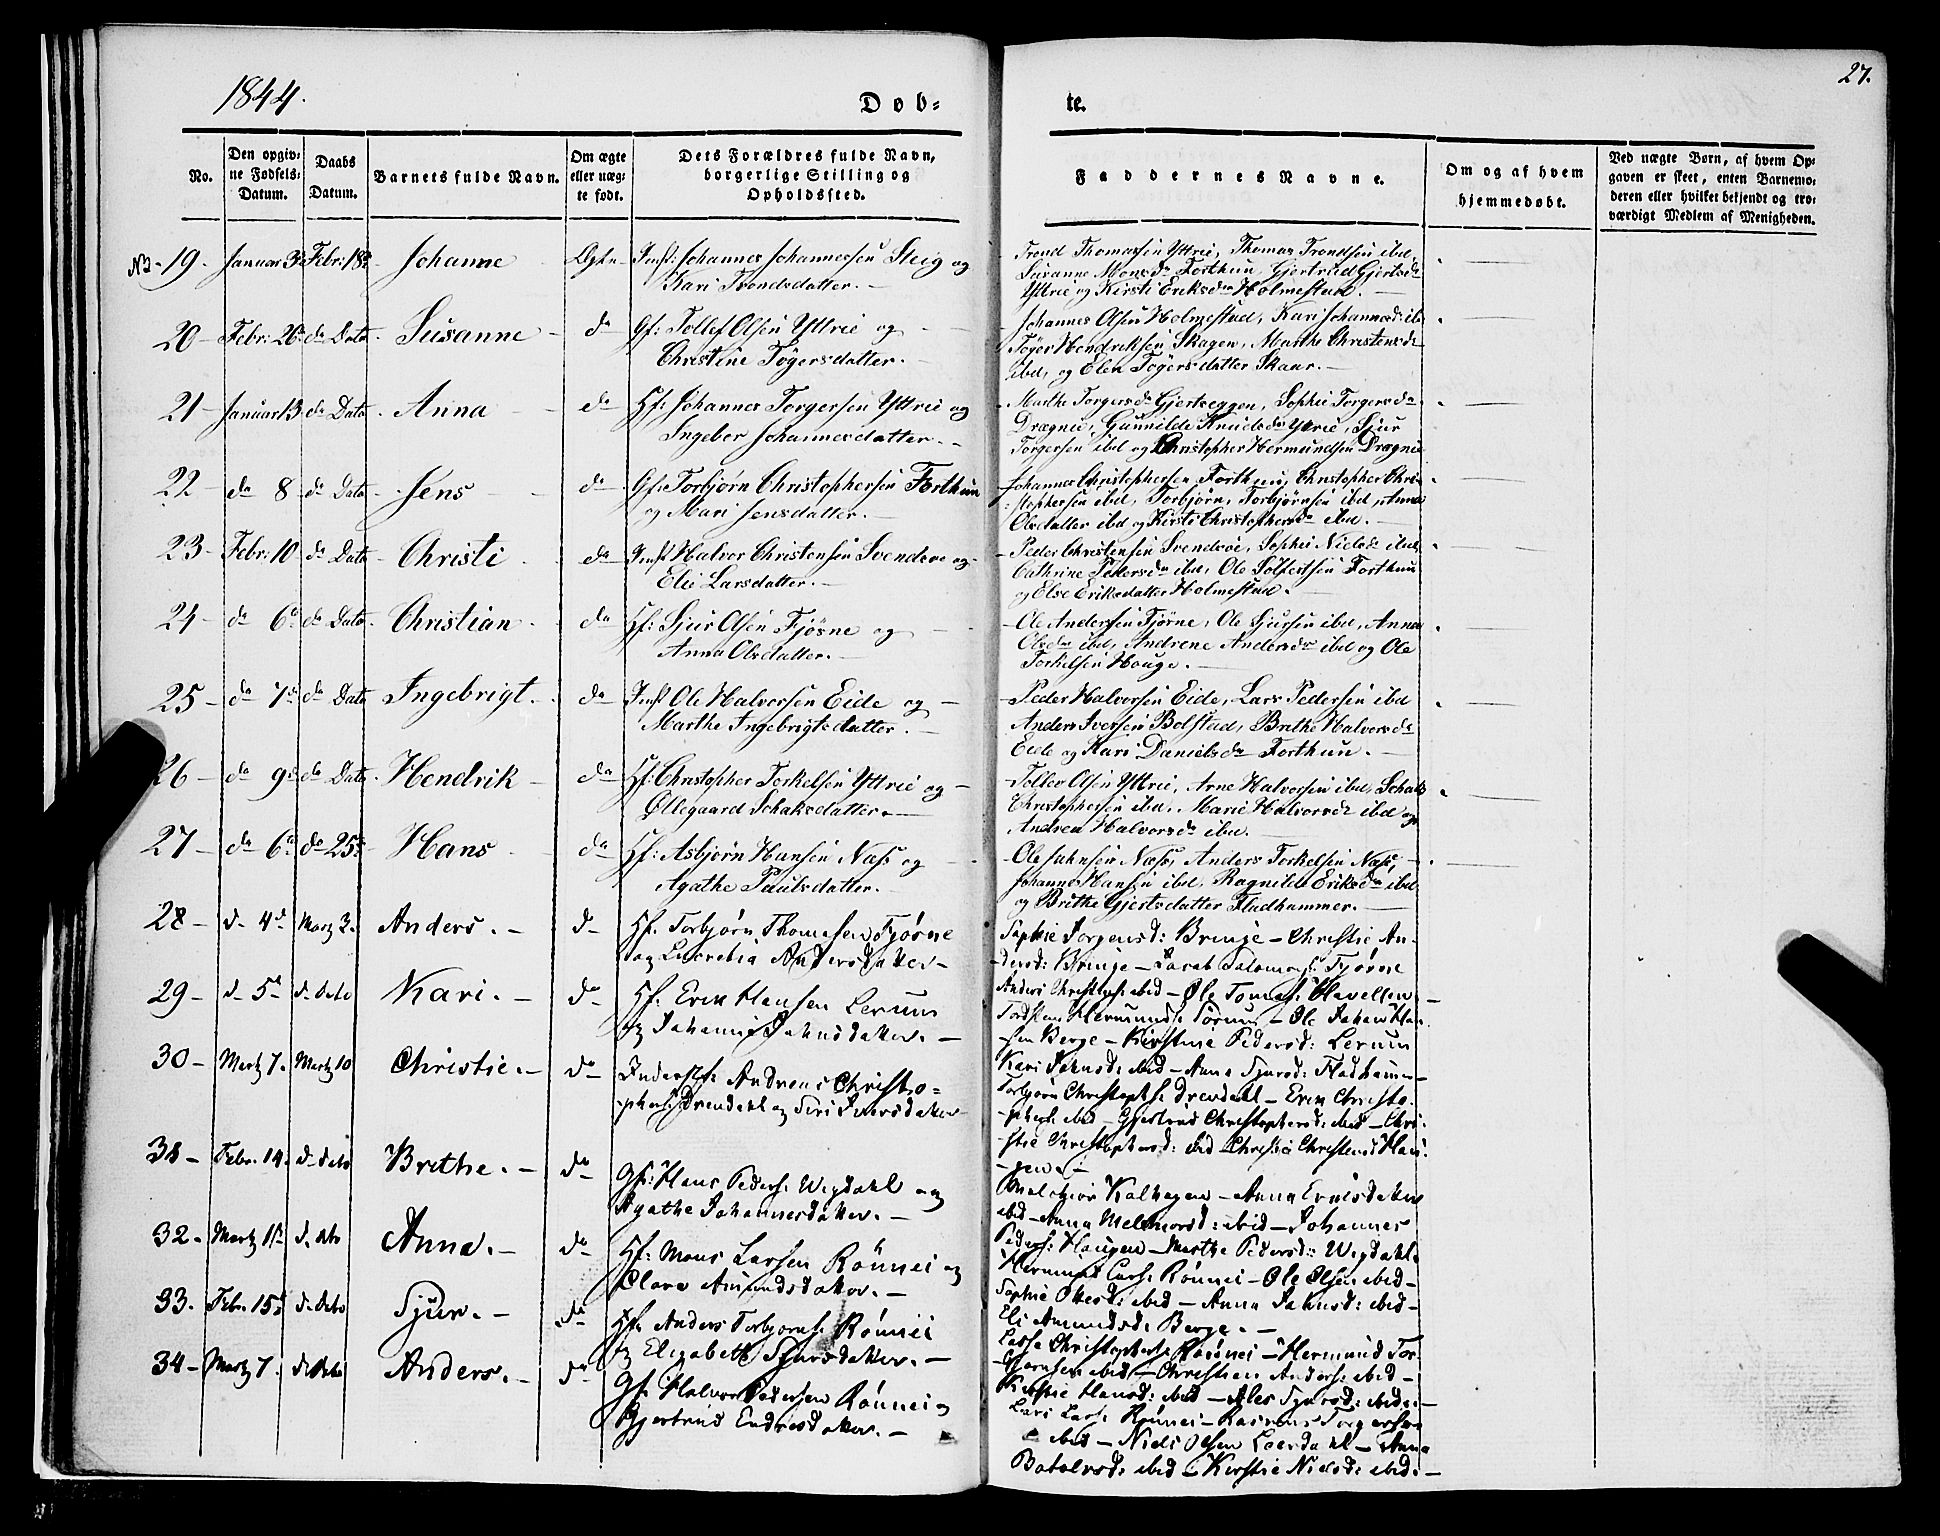 1844.
Døb-
te.
27.
No.
Den opgiv-
ne Fødsels-
Datum.
Daabs
Datum.
Barnets fulde Navn.
Om ægte
eller uæg-
te født.
Dets Forældres fulde Navn,
borgerlige Stilling og
Opholdssted.
Faddernes Navne.
Om og af hvem
hjemmedøbt.
Ved uægte Børn, af hvem Op-
gaven er skeet, enten Barnemo-
deren eller hvilket bekjendt og tro-
værdigt Medlem af Menigheden.
19. Januar 3 Febr: 18 Johanne Johannes Johannesen Steig og
Kari Trondsdatter.
Trond Thomassen Yttrie, Thomas Trondsen ibd,
Susanne Monsdr Forthun, Gjertrud Gjertsdr
Yttrie og Kirsti Eriksdr Holmestad.
20 Febr: 26 do Dato Susanne do Gf: Tollef Olsen Yttrie og
Christine Tøgersdatter.
Johannes Olsen Holmestad, Kari Johannesd: ibd
Tøger Hendriksen Skagen, Marthe Christensdr
ibd, og Elen Tøgersdatter Skaar.
21 Januar 13 do Dato Anna do Hf: Johannes Torgersen Yttrie og
Ingebor Johannesdatter.
Marthe Torgersdr Gjertseggen, Sophie Torgersdr
Drægnie, Gunnilde Knudsdr Yttrie, Sjur
Torgersen ibd og Christopher Hermundsen Drægnie
22 do 8 do Dato Jens do Gf: Torbjørn Christophersen Forthun
og Mari Jensdatter.
Johannes Christophersen Forthun, Christopher Chri-
stophersen ibd, Torbjørn Torbjørnsen ibd, Anna
Olsdatter ibd og Kirsti Christophersdr ibd.
23 Febr: 10 do Dato Christi do Halvor Christensen Svendsøe og
Eli Larsdatter.
Peder Christensen Svendsøe, Sophie Nielsdr ibd,
Cathrine Pedersdr ibd, Ole Solfestsen Forthun
og Else Eriksdatter Holmestad.
24 do 6 do Dato Christian do Hf: Sjur Olsen Fjøsne og
Anna Olsdatter.
Ole Andersen Fjøsne, Ole Sjursen ibd, Anna
Olsdr ibd, Andrene Andersdr ibd og Ole
Torkelsen Houge.
25 do 7 do Dato Ingebrigt do Ole Halvorsen Eide og
Marthe Ingebrigtsdatter.
Peder Halvorsen Eide, Lars Pedersen ibd
Anders Iversen Bolstad, Brithe Halvorsdr
Eide og Kari Danielsdr Forthun.
26 do 9 do Dato Hendrik do Hf: Christopher Torkelsen Yttrie og
Øllegaard Schaksdatter.
Tollev Olsen Yttrie, Arne Halvorsen ibd, Schak
Christophersen ibd, Marie Halvorsdr ibd og
Andrea Halvorsdr ibd.
27 do 6 do 25 Hans do Hf: Asbjørn Hansen Næss og
Agathe Paulsdatter.
Ole Johnsen Næss, Anders Torkelsen Næss,
Johannes Hansen ibd, Ragnilde Eriksdr ibd
og Brithe Gjertsdatter Fladhammer.
28 d. 4 Martz 3. Anders. d Hf. Torbjørn Thomesen Fjøsne
og Lucretia Andersdatter
Sophie Jørgensd: Bringe Christie An-
dersd: Bringe Jacob Salomons: Fjøsne
Anders Christophs: ibid Ole Tomas:
29 d. 5 d. dito Kari. do Hf. Erik Hansen Lerum
og Johanne Johnsdatter.
Torsten Hermunds: Sørum Ole Johan Han-
sen Berge Kirstine Pedersd: Lerum
Kari Johnsd: ibid Anna Sjursd: Fladham
30 Martz 7. Martz 10 Christie. do Inderstf: Andreas Christo-
phers: Drendahl og Siri Iversdatter
Torbjørn Christophs: Drendahl Erik Christo-
phers: ibid Gjertrud Christophersd: ibid Chri-
stie Christophersd: ibid Christie Christensd Hau-
gen.
31 Febr. 14. d. dito Brithe. do Gf: Hans Peders: Wigdahl og
Agathe Johannesdatter.
Melchior Kalhagen Anna
ibid Anna Melchiorsd: ibid Johannes
Peders: Haugen Marthe Pedersd: Wigdahl.
32. Martz d. dito Anna. do Hf: Mons Larsen Rønnei og
Clara Amundsdatter.
Hermund Lars: Rønnei Ole Olsen ibid
Sophie Olesd: ibid Anna Johnsd: ibid
Eli Amundsd: Berge.
33. Febr. 15 d. dito Sjur. do Hf. Anders Torbjørns: Rønnei
og Elizabeth Sjursdatter.
Lasse Christophers: Rønnei Hermund Tor-
bjørnsen ibid Christian Anders: ibid
Kirstie Hansd: ibid Sjursd: ibid.
34 Martz 7. d. dito Anders. do Gf: Halvor Pedersen Rønnei og
Gjertrud Endresdatter.
Lars Lars: Rønnei Rasmus Torgersen
ibid Niels Olsen Leerdahl Anna
Botolvsd: ibid Kirstie Nielsd: ibid.